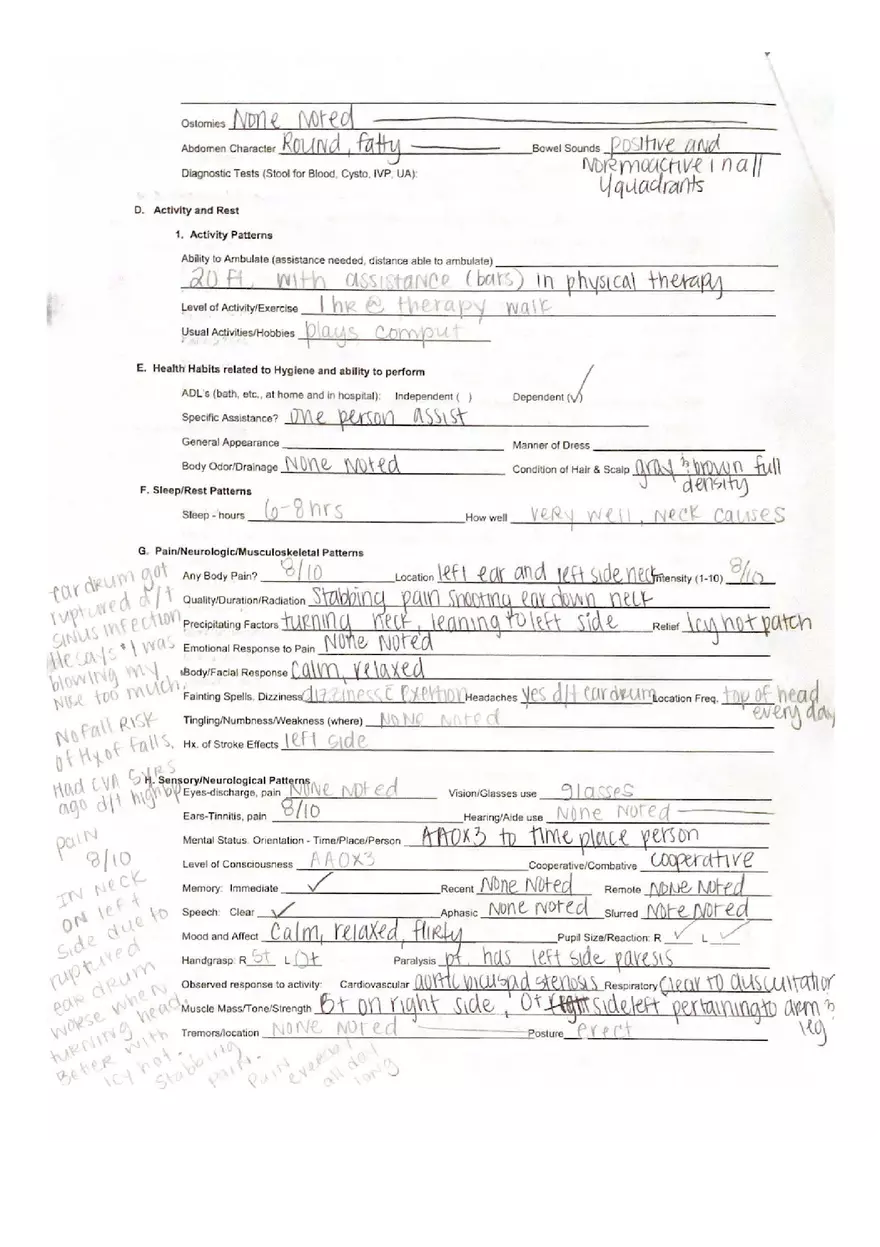 Ostomies None Noted
Abdomen Character Round, fatty Bowel Sounds positive and
Normoactive in all
Diagnostic Tests (Stool for Blood, Cysto, IVP, UA):
4 quadrants
D. Activity and Rest
1. Activity Patterns
Ability to Ambulate (assistance needed, distance able to ambulate)
20 ft. with assistance (bars) in physical therapy
Level of Activity/Exercise 1 hr @ therapy walk
Usual Activities/Hobbies plays comput
E. Health Habits related to Hygiene and ability to perform
ADL's (bath, etc., at home and in hospital): Independent ( ) Dependent (✓)
Specific Assistance? one person assist
General Appearance Manner of Dress
Body Odor/Drainage None Noted Condition of Hair & Scalp gray & brown full
density
F. Sleep/Rest Patterns
Sleep - hours 6-8 hrs How well very well, neck causes
G. Pain/Neurologic/Musculoskeletal Patterns
Any Body Pain? 8/10 Location left ear and left side neck Intensity (1-10) 8/10
Quality/Duration/Radiation Stabbing pain shooting ear down neck
Precipitating Factors turning neck, leaning to left side Relief Icy hot patch
Emotional Response to Pain None Noted
Body/Facial Response calm, relaxed
Fainting Spells, Dizziness dizziness c exertion Headaches yes d/t eardrum Location Freq. top of head
every day
Tingling/Numbness/Weakness (where) None Noted
Hx. of Stroke Effects left side
H. Sensory/Neurological Patterns
Eyes-discharge, pain None Noted Vision/Glasses use glasses
Ears-Tinnitis, pain 8/10 Hearing/Aide use None Noted
Mental Status. Orientation - Time/Place/Person AAOX3 to time place person
Level of Consciousness AAOX3 Cooperative/Combative cooperative
Memory: Immediate ✓ Recent None Noted Remote None Noted
Speech: Clear ✓ Aphasic None Noted Slurred Note Noted
Mood and Affect Calm, relaxed, flirty Pupil Size/Reaction: R ✓ L ✓
Handgrasp: R 5+ L 0+ Paralysis pt. has left side paresis
Observed response to activity: Cardiovascular aortic bicuspid stenosis Respiratory Clear to auscultation
Muscle Mass/Tone/Strength 5+ on right side, 0+ right side left pertaining to arm &
leg
Tremors/location None Noted Posture erect
eardrum got
ruptured d/t
sinus infection
He says "I was
blowing my
nose too much.
No fall risk
of Hx of falls.
Had CVA 5 yrs
ago d/t high bp
pain
8/10
in neck
on left
side due to
ruptured
ear drum
worse when
turning head.
Better with
icy hot.
Stabbing
pain.
Pain
all day
long